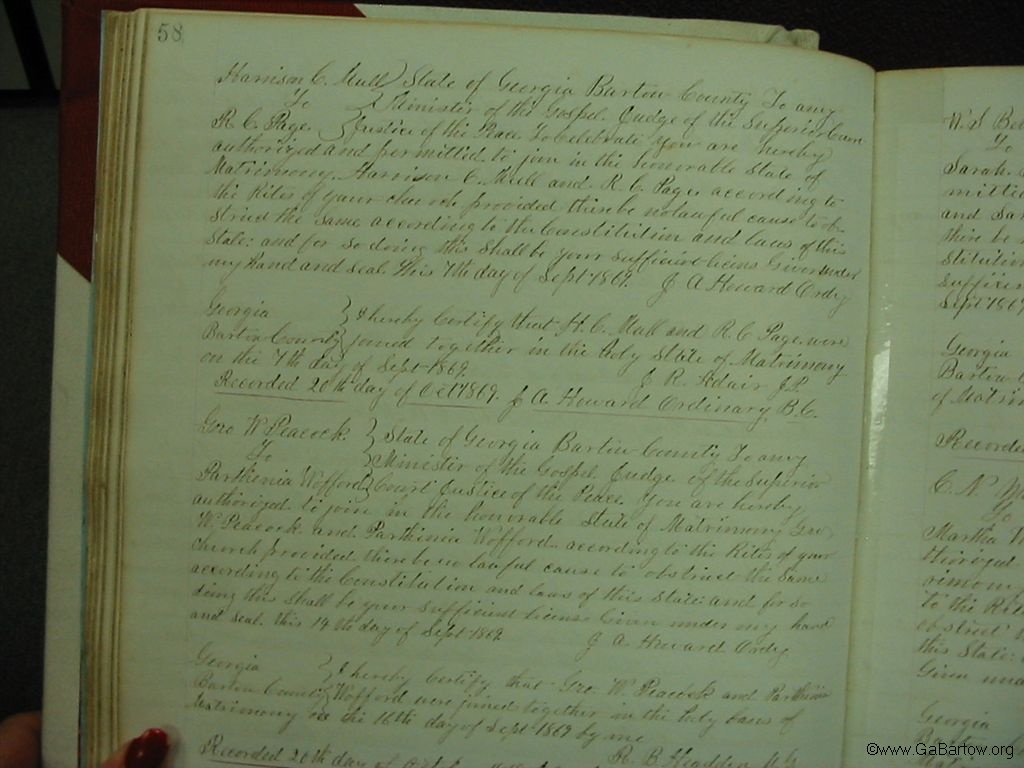 58
Harrison C. Mull State of Georgia Bartow County To any
To Minister of the Gospel. Judge of the Superior Court
R. C. Page Justice of the Peace To celebrate you are hereby
authorized and permitted to join in the honorable State of
Matrimony. Harrison C. Mull and R. C. Page according to
the Rites of your church provided there be no lawful cause to ob-
struct the same according to the Constitution and laws of this
State: and for so doing this shall be your sufficient licens Given under
my hand and seal. This 7th day of Sept 1869. J A Howard Ordy
Georgia I hereby Certify that H. C. Mull and R. C Page were
Bartow County joined together in the holy State of Matrimony
on the 7th day of Sept 1869. J. R. Adair J.P.
Recorded 20th day of Oct 1869. J A Howard Ordinary B.C.
Geo W Peacock State of Georgia Bartow County To any
To Minister of the Gospel Judge of the Superior
Parthinia Wofford Court Justice of the Peace. You are hereby
authorized to join in the honorable State of Matrimony Geo
W. Peacock and Parthinia Wofford according to the Rites of your
church provided there be no lawful cause to obstruct the same
according to the Constitution and laws of this State: and for so
doing this shall be your sufficient license Given under my hand
and seal. this 14th day of Sept 1869 J A Howard Ordy
Georgia I hereby Certify that Geo. W. Peacock and Parthinia
Bartow County Wofford were joined together in the holy bans of
Matrimony on the 16th day of Sept 1869 by me
Recorded 20th day of R. B. Headden
W. S
To
Sarah
mitte
and Sar
there be n
stitution
sufficien
Sept 1869
Georgia
Bartow
of Matrim
Recorded
C. N
To
Martha
this State:
Given und
Georgia
©www.GaBartow.org